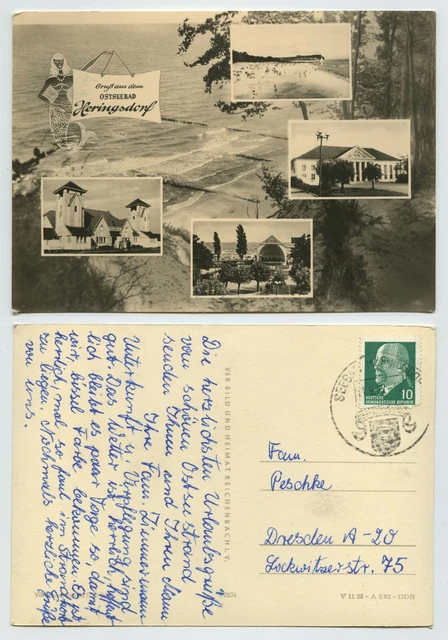 Gruß aus dem
OSTSEEBAD
Heringsdorf
Die herzlichsten Urlaubsgrüße
vom schönen Ostseestrand
senden Ihnen und Ihrem Mann
Ihre Fam. Zimmermann
Unterkunft u. Verpflegung sind
gut. Das Wetter ist herrlich, hoffent
lich bleibt es paar Tage so, damit
wir bissel Farbe bekommen. Es ist
herrlich, mal so faul im Strandkorb
zu liegen. Nochmals herzliche Grüße
von uns.
VEB BILD UND HEIMAT REICHENBACH I. V.
DEUTSCHE
DEMOKRATISCHE REPUBLIK
10
Fam.
Peschke
Dresden A-20
Lockwitzerstr. 75
V 11 28 - A 3/62 - DDR